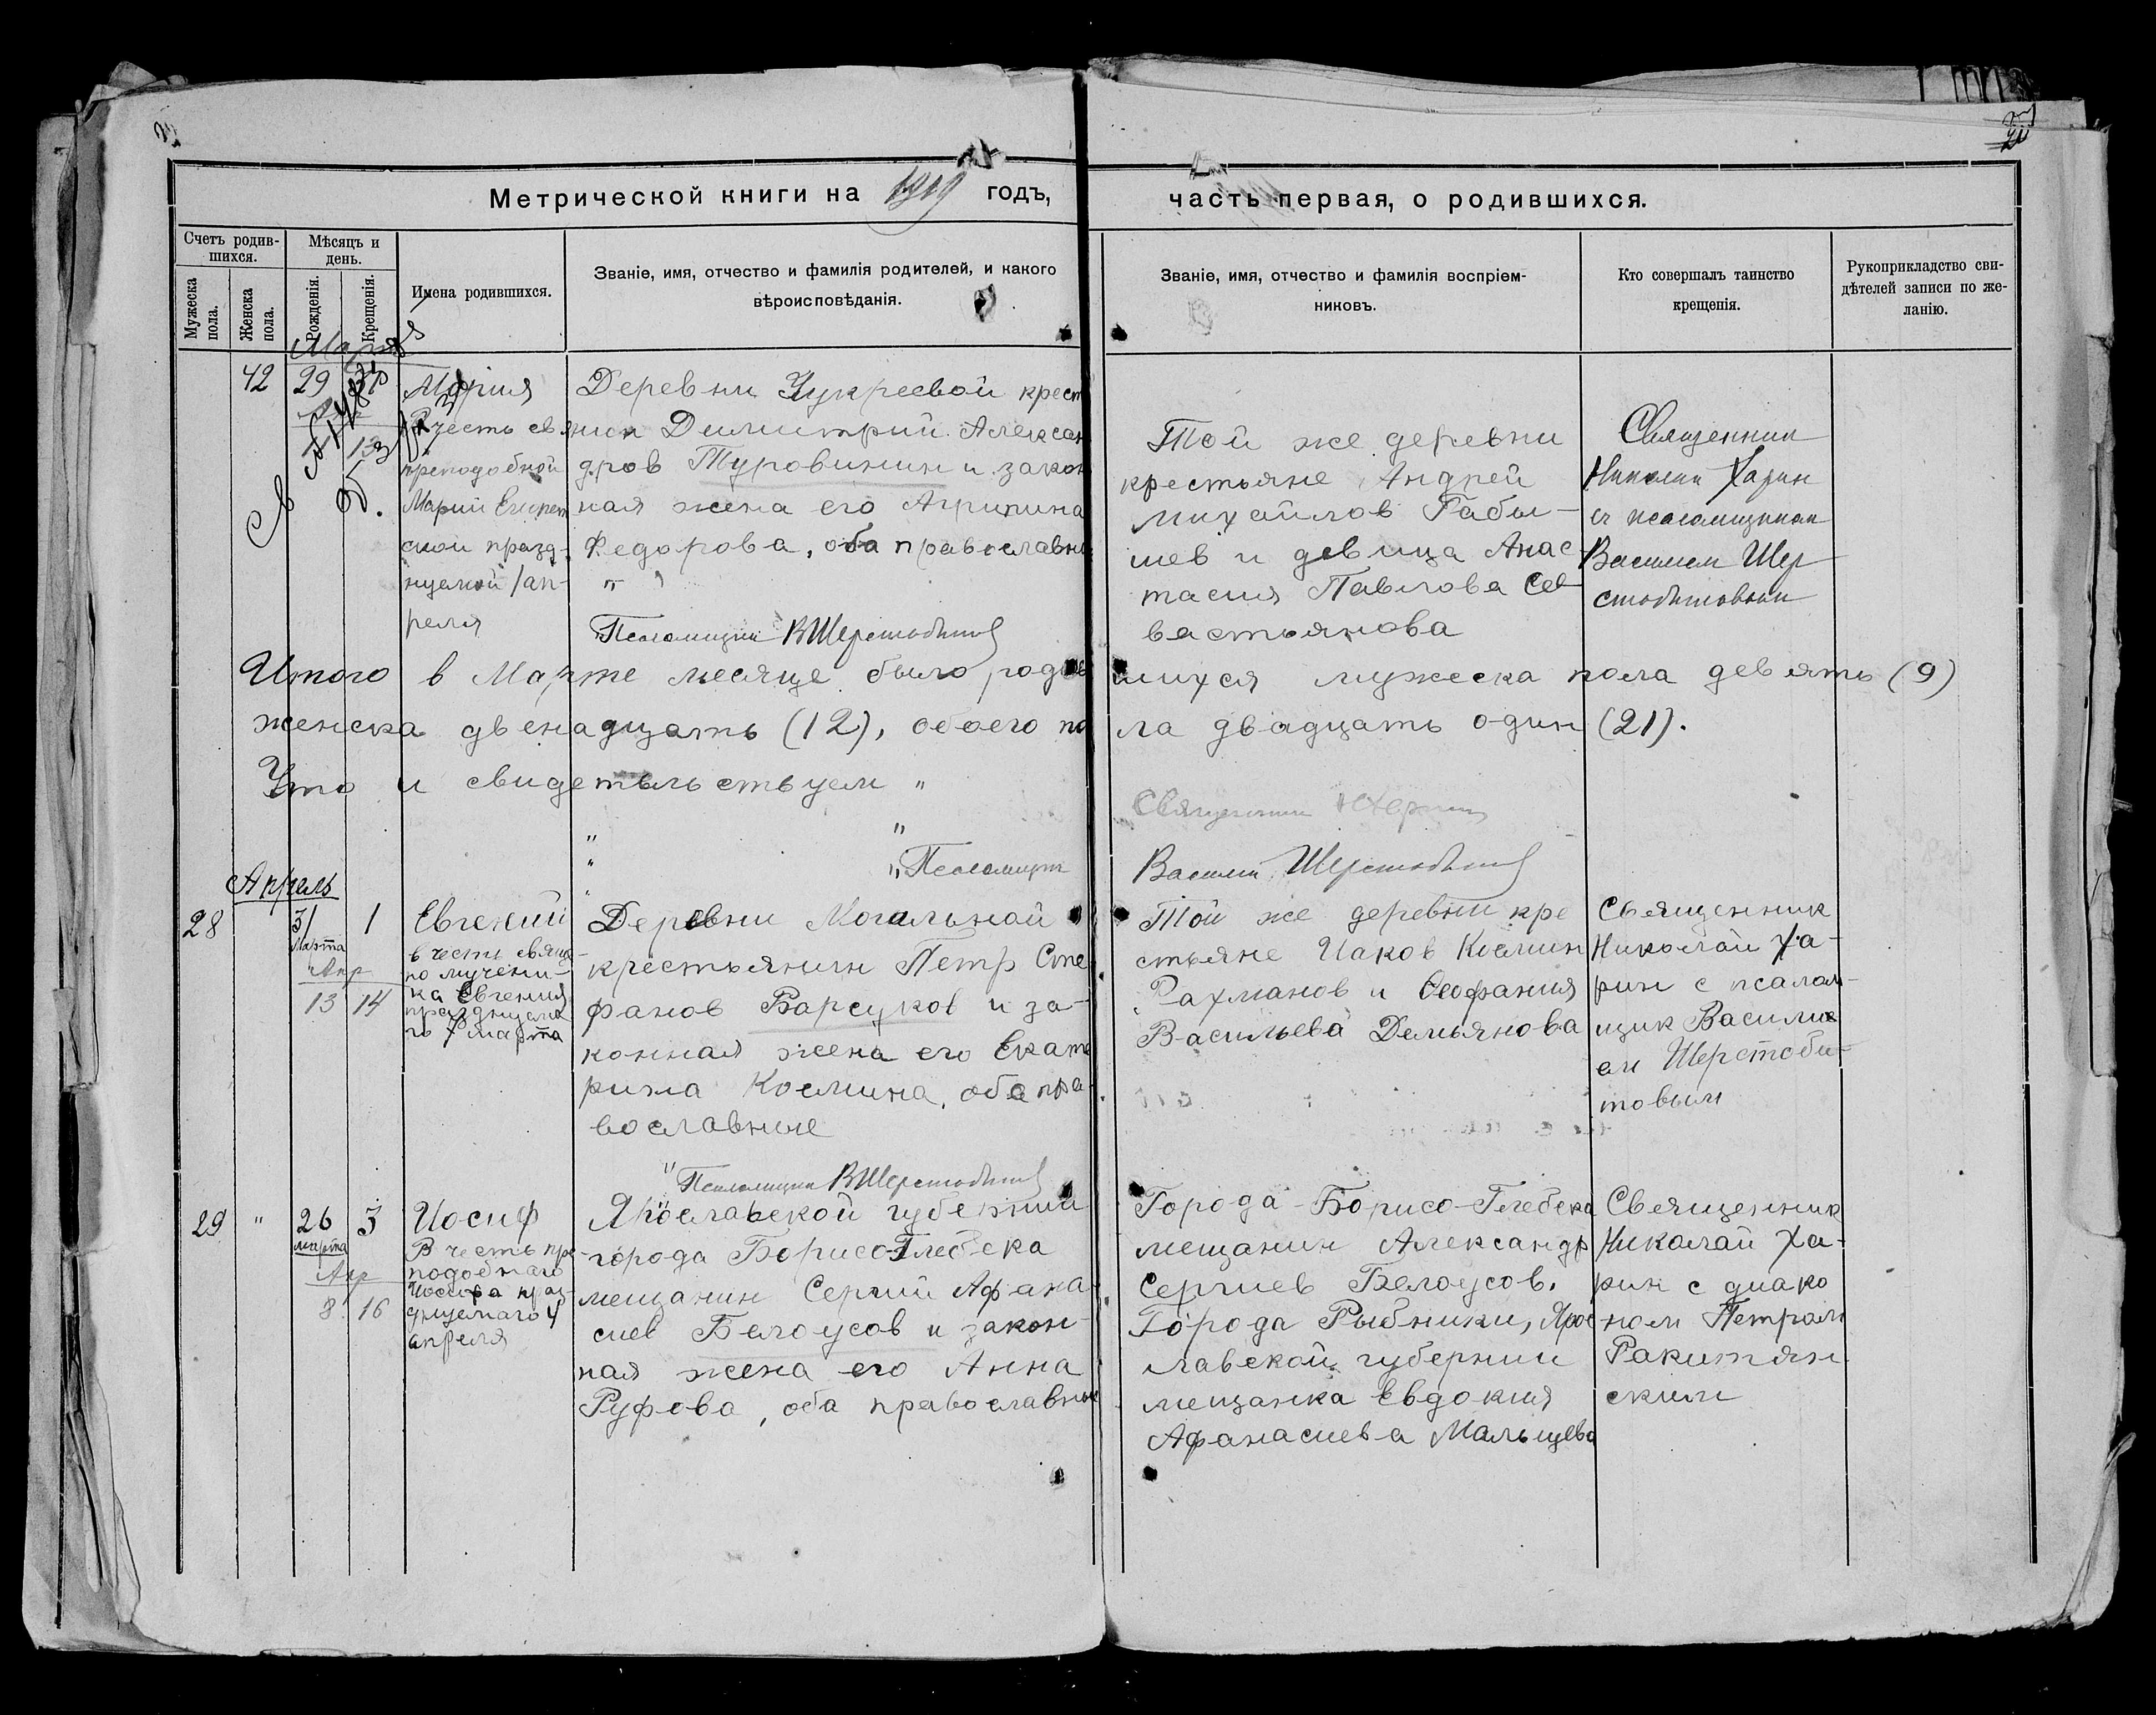 Метрической книги на 1919 годъ,
часть первая, о родившихся.
Счетъ родив-
шихся.
Мужеска
пола.
Женска
пола.
Мѣсяцъ и
день.
Рожденія.
Крещенія.
Имена родившихся.
Званіе, имя, отчество и фамилія родителей, и какого
вѣроисповѣданія.
Званіе, имя, отчество и фамилія воспріем-
никовъ.
Кто совершалъ таинство
крещенія.
Рукоприкладство сви-
дѣтелей записи по же-
ланію.
42
29
Мария
честь св
преподобной
Марии Египет
ской празд-
нуемой 1 ап-
реля
Деревни Чукреевой крест
янин Димитрий Алексан
дров Туровинин и закон
ная жена его Агрипина
Федорова, оба православны
Псаломщик В Шерстобитов
Той же деревни
крестьяне Андрей
Михайлов Рабы-
шев и девица Анас-
тасия Павлова Се-
вастьянова
Священник
Николай Харин
с псаломщиком
Василием Шер
стобитовым
Итого в Марте месяце было родив шихся мужеска пола девять (9)
женска двенадцать (12), обоего по ла двадцать один (21).
Что и свидетельствуем "
Священник Н Харин
Псаломщик Василий Шерстобитов
Апрель
28
31
Марта
1
Апр
13 14
Евгений
в честь свящ-
но мучени-
ка Евгения
празднуема
го 7 марта
Деревни Могильной
крестьянин Петр Сте
фанов Барсуков и за-
конная жена его Екате
рина Косьмина, оба пра-
вославные
"Псаломщик В Шерстобитов
Той же деревни кре
стьяне Иаков Космин
Рахманов и Феофания
Васильева Демьянова
Священник
Николай Ха-
рин с псалом-
щик Васили
ем Шерстоби-
товым
29 "
26
марта
3
Апр
8 16
Иосиф
В честь пре
подобнаго
Иосифа праз-
днуемаго 4
апреля
Ярославской губернии
города Борисо-Глебска
мещанин Сергий Афана
сиев Белоусов и закон-
ная жена его Анна
Руфова, оба православные
Города Борисо-Глебска
мещанин Александр
Сергиев Белоусов.
Города Рыбники, Ярос
лавской губернии
мещанка Евдокия
Афанасиева Мальцева
Священник
Николай Ха-
рин с диако
ном Петром
Ракитян
ским